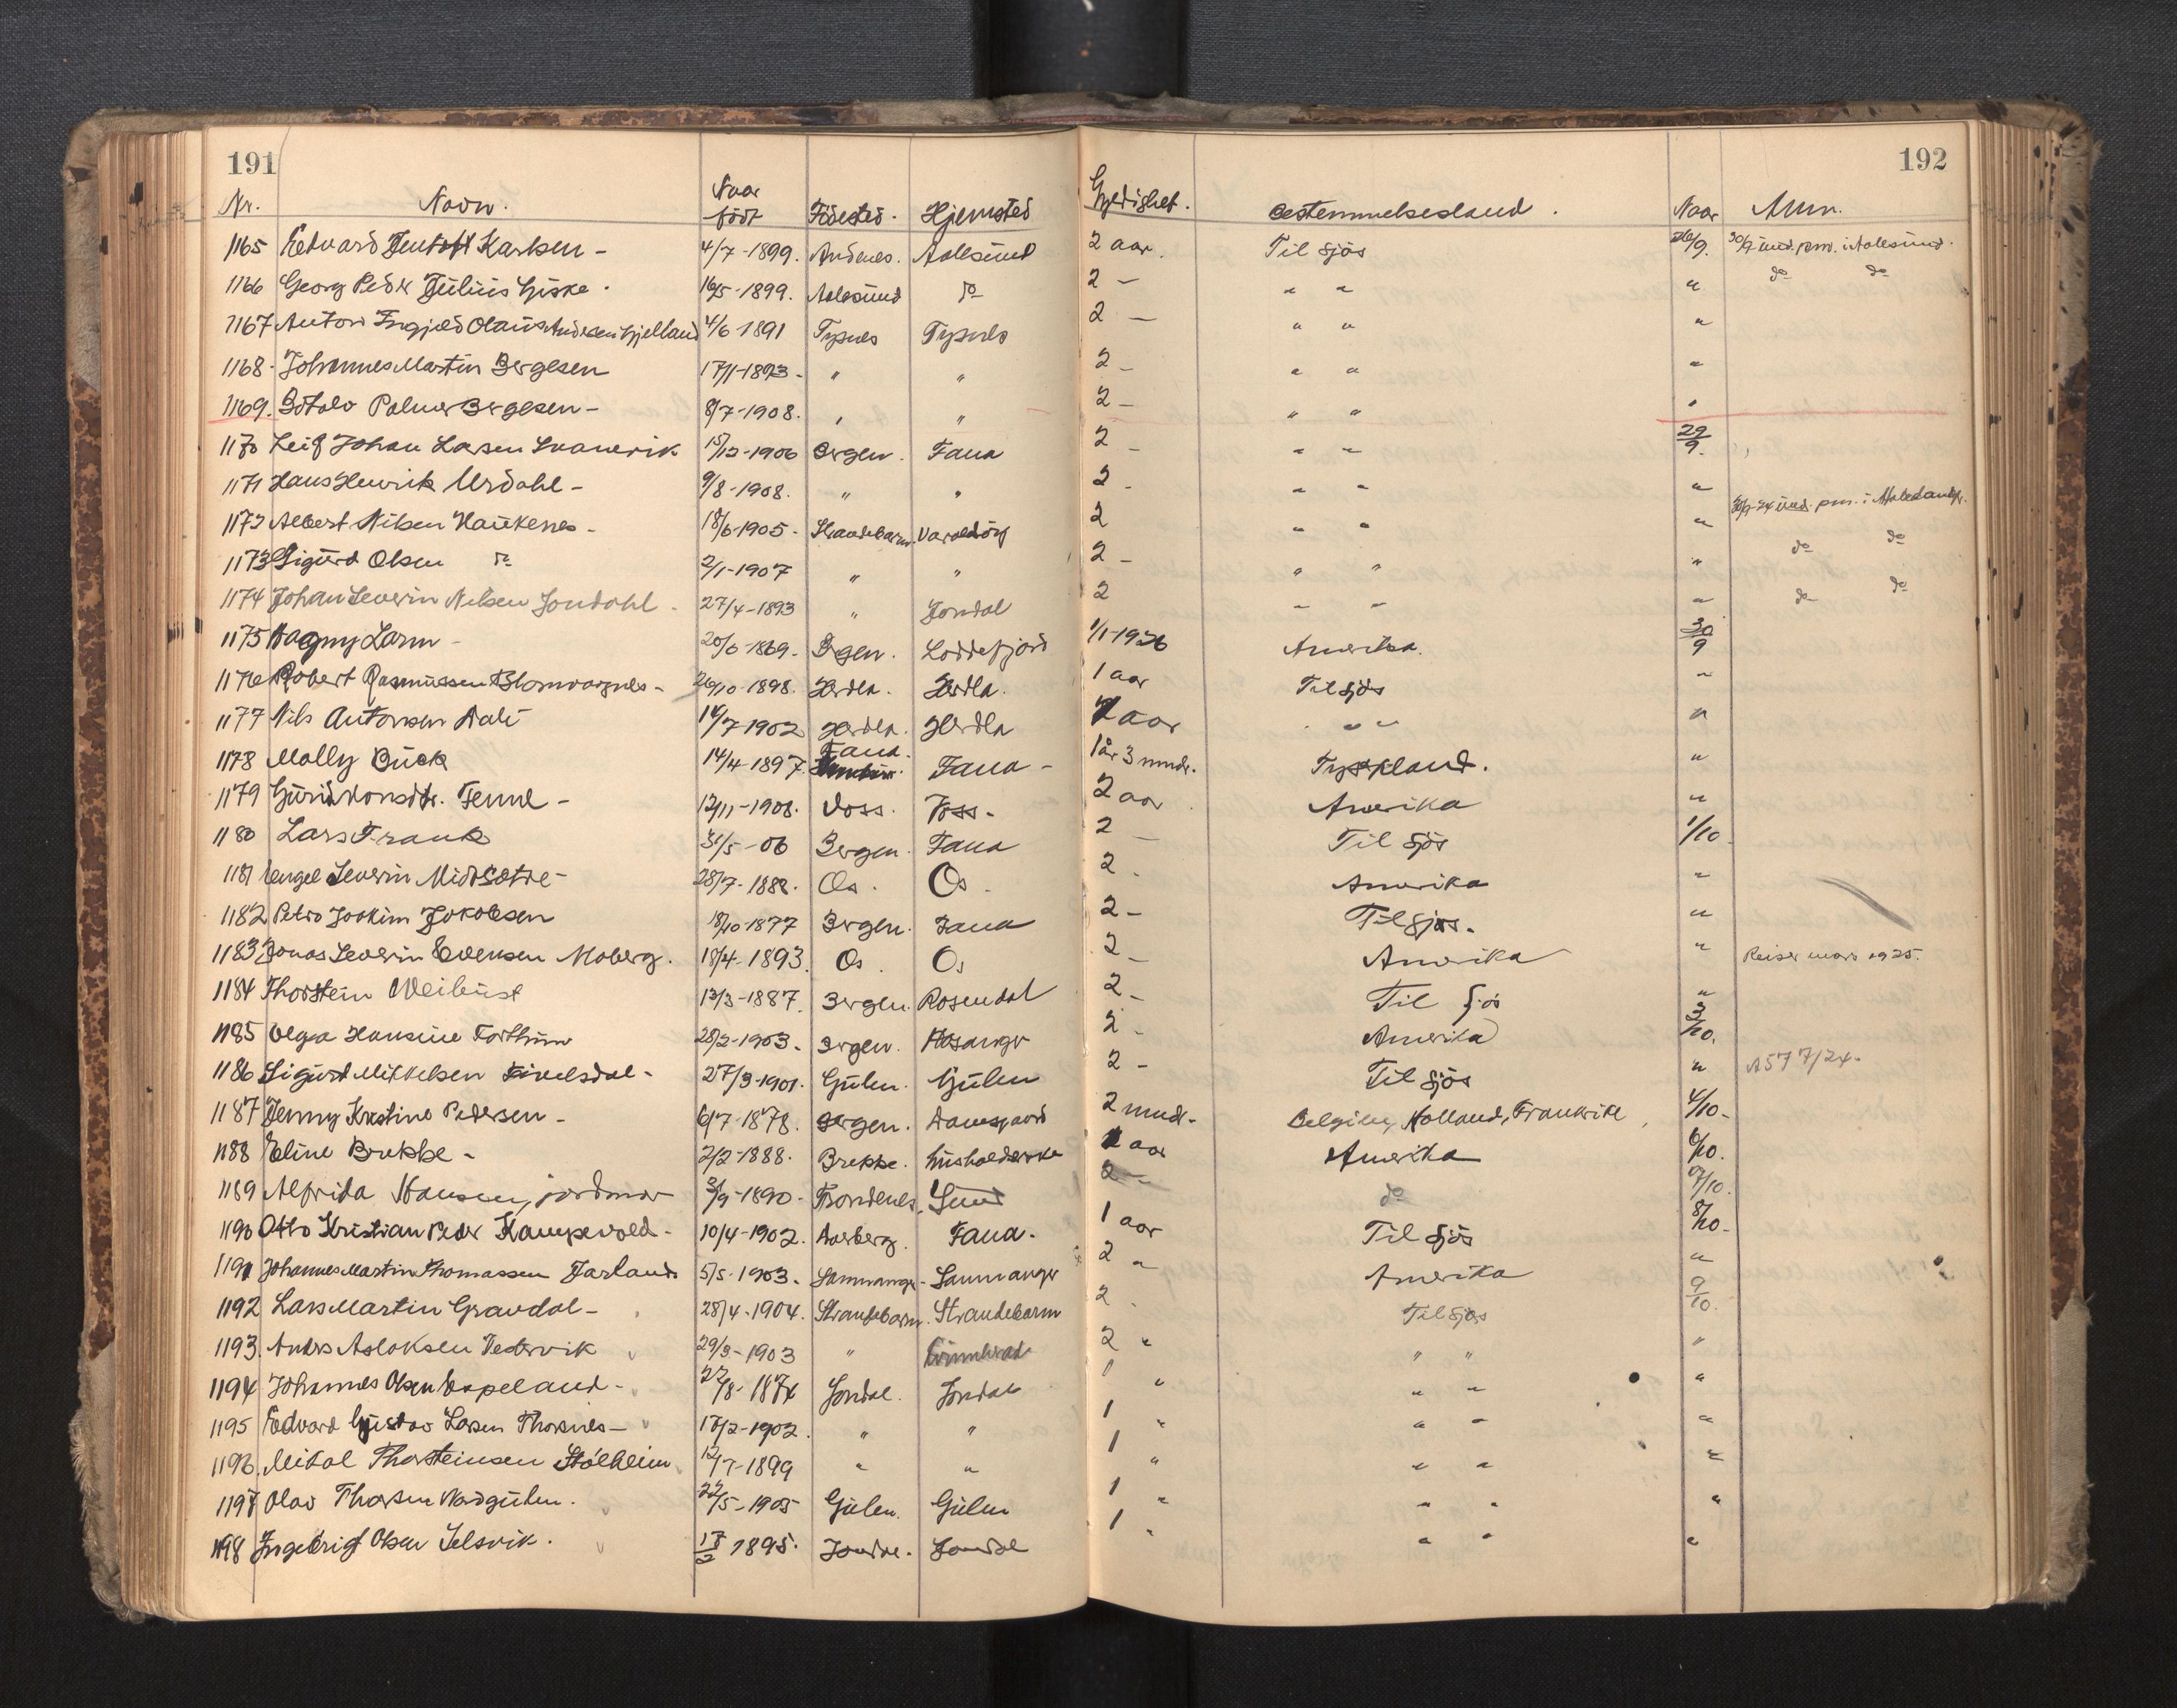 191
192
Nr. Navn. Naar født Fødested. Hjemsted Gyldighet. Bestemmelsesland. Naar Anm.
1165 Edvard Karlsen - 4/7-1899. Andenes. Aalesund 2 aar. Til sjøs 26/9. 30/9 und. pm. i Aalesund.
1166 Georg Peder Julius Giske. 16/5-1899. Aalesund do 2 - " " " do do
1167 Anton Ingjald Olaus Andersen Gjelland 4/6 1891 Tysnes Tysnes 2 - " " "
1168. Johannes Martin Bergesen 17/1-1893. " " 2 - " " "
1169. Botolv Palmer Bergesen - 8/7-1908. " " 2 - " " "
1170 Leif Johan Larsen Svanevik 15/12-1906 Bergen. Fana 2 - " " 29/9.
1171 Hans Henrik Urdahl - 9/8-1908. " " 2 - " " "
1172 Albert Nilsen Haukenes - 18/6-1905. Strandebarm. Varaldsøy 2 " " " und. pm. i
1173 Sigurd Olsen do 2/1-1907 " " 2 - " " " do do
1174 Johan Severin Nilsen Jondahl. 27/4-1893 " Jondal 2 " " " do do
1175 Dagny Larm - 20/6-1869. Bergen. Loddefjord 1/1-1926 Amerika. 30/9
1176 Robert Rasmussen Blomvaagnes - 26/10-1898. Herdla. Herdla. 1 aar Til sjøs "
1177 Nils Antonsen Dale 14/7-1902 Herdla. Herdla aar " " "
1178 Molly Buck 14/4-1897. Fana. Fana - 1 år 3 mndr. Tyskland. "
1179 Gurid Monsdtr. Tenne - 12/11-1908. Voss. Voss. 2 aar Amerika "
1180 Lars Frank 31/5-06 Bergen. Fana 2 - Til sjøs 1/10
1181 Engel Severin Midtsætre - 28/7-1888. Os. Os. 2. Amerika "
1182 Petro Joakim Jakobsen 18/10-1877 Bergen. Fana 2 - Til sjøs. "
1183 Jonas Severin Evensen Moberg. 18/4-1893. Os. Os 2 - Amerika " Reiser mars 1925.
1184 Thorstein Weibust 13/3-1887. Bergen. Rosendal 2 - Til sjøs "
1185 Olga Hansine Forthun 28/2-1903. Bergen. Hosanger 2 - Amerika 3/10.
1186 Sigurd Mikkelsen 27/3-1901. Gulen. Gulen 2 - Til sjøs " A577/24.
1187 Jenny Kristine Pedersen - 6/7-1878. Bergen. Damsgaard 2 mndr. Belgien, Holland, Frankrike 4/10.
1188 Eline Brekke - 2/2-1888. Brekke. aar Amerika 6/10.
1189 Alfrida Hansen, jordmor /9-1890. Trondenes. Sund 2 - do 7/10.
1190 Otto Kristian Peder Kampevold. 10/4-1902. Fana. 1 aar Til sjøs 8/10.
1191 Johannes Martin Thomassen Tarland 5/5-1903. Samnanger. Samnanger 2 " Amerika "
1192 Lars Martin Gravdal - 28/4-1904. Strandebarm. Strandebarm 2. Til sjøs 9/10.
1193. Anders Aslaksen Vestervik 29/3-1903 " Kvinnherad 2 " " " "
1194 Johannes Olsen Espeland - 22/8-1874 Jondal. Jondal 1 " " " "
1195 Edvard Gustav Larsen Thorsnes - 17/2-1902. " " 1 " " " "
1196 Mikal Thorsteinsen Stølheim 12/7-1899 " " 1 " " " "
1197 Olav Thorsen Nordgulen. 22/5-1905 Gulen. Gulen 1 " " " "
1198 Ingebrigt Olsen Selsvik. 17/2 1895. Jondal. Jondal 1 " " " "